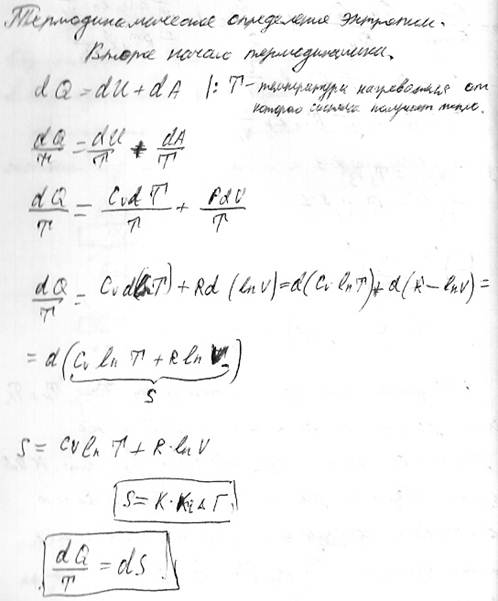 Термодинамическое определение энтропии.
Второе начало термодинамики.
dQ = dU + dA |: T - температура нагревателя от
которого система получает тепло.
dQ/T = dU/T + dA/T
dQ/T = CvdT/T + PdV/T
dQ/T = Cvd(lnT) + Rd(lnV) = d(Cv lnT) + d(R - lnV) =
= d(Cv ln T + R ln V)
S
S = Cv ln T + R · ln V
dQ/T = dS